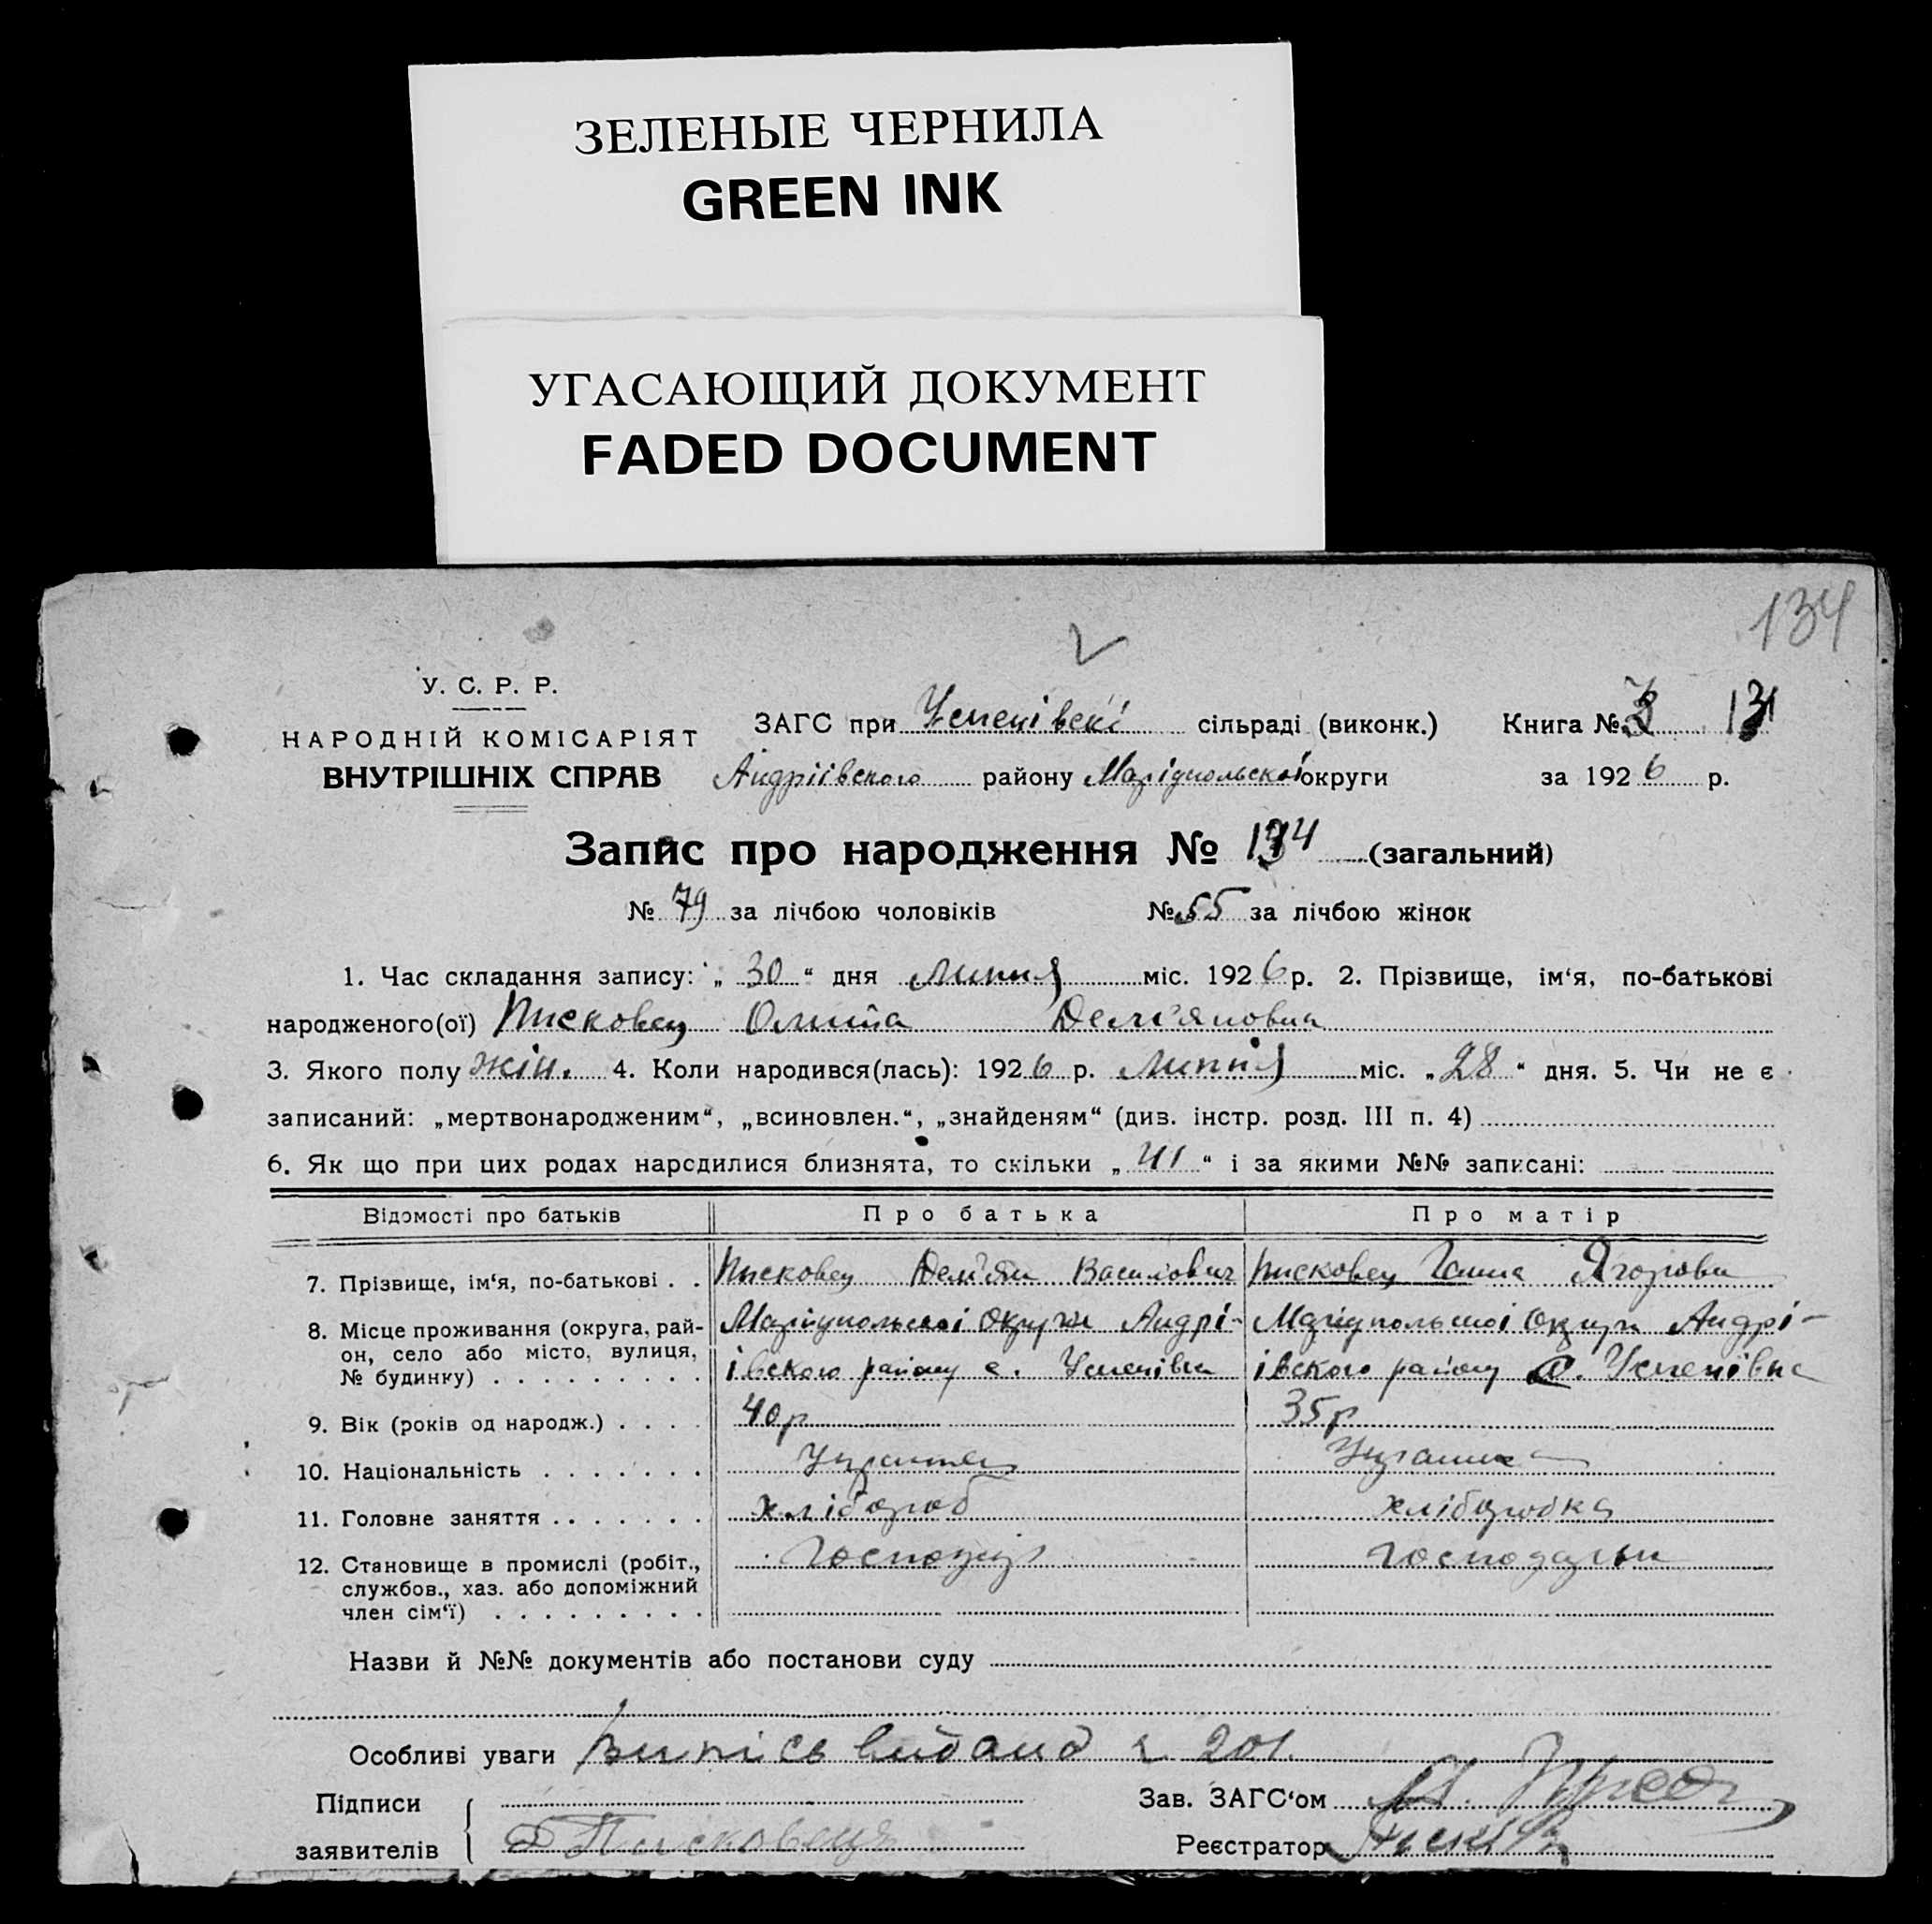 ЗЕЛЕНЫЕ ЧЕРНИЛА
GREEN INK
УГАСАЮЩИЙ ДОКУМЕНТ
FADED DOCUMENT
134
У. С. Р. Р.
НАРОДНІЙ КОМІСАРІЯТ
ВНУТРІШНІХ СПРАВ
ЗАГС при Успенівскі сільраді (виконк.) Книга №
Андріївского району Маріупольскої округи за 1926 р.
Запис про народження № 134 (загальний)
№ 79 за лічбою чоловіків № 55 за лічбою жінок
1. Час складання запису: „ 30 “ дня Липня міс. 1926 р. 2. Прізвище, ім‘я, по-батькові
народженого(ої) Писковец Олита Дем'яновна
3. Якого полу жін. 4. Коли народився(лась): 1926 р. Липня міс. „28“ дня. 5. Чи не є
записаний: „мертвонародженим“, „всиновлен.“, „знайденям“ (див. інстр. розд. III п. 4)
6. Як що при цих родах народилися близнята, то скільки „ “ і за якими №№ записані:
Відомості про батьків Про батька Про матір
7. Прізвище, ім‘я, по-батькові . . Писковец Дем'ян Василович Писковец Ганна Ягоровн
8. Місце проживання (округа, рай- Маріупольскоі Округи Андрі- Маріупольскої Округи Андрі-
он, село або місто, вулиця, ївского району с. Успенівка ївского району с. Успенівка
№ будинку) . . . . . . . . .
9. Вік (років од народж.) . . . . 40р 35р
10. Національність . . . . . . . Українец Українка
11. Головне заняття . . . . . . . хлібороб хліборобка
12. Становище в промислі (робіт., Господар господарьк
службов., хаз. або допоміжний
член сім‘ї) . . . . . . . . .
Назви й №№ документів або постанови суду
Особливі уваги Випісь видана 201.
Підписи
заявителів Писковець
Зав. ЗАГС‘ом
Реєстратор